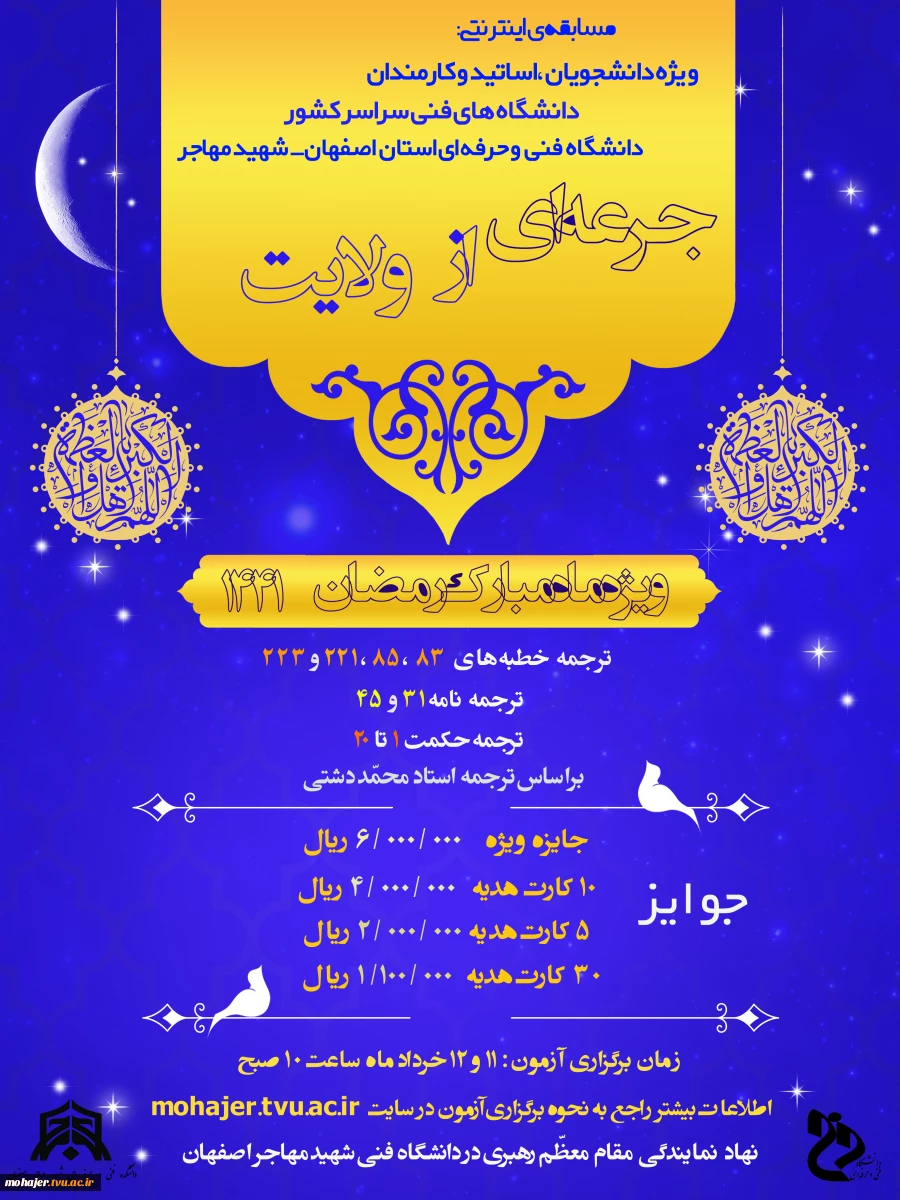 مسابقه‌ی اینترنتی:
ویژه دانشجویان ،اساتید و کارمندان
دانشگاه های فنی سراسر کشور
دانشگاه فنی و حرفه ای استان اصفهان_ شهید مهاجر
جرعه‌ای از ولایت
اللهم اهل الکبریاء و العظمة
اللهم اهل الکبریاء و العظمة
ویژه ماه مبارک رمضان ۱۴۴۱
ترجمه خطبه های ۸۳ ،۸۵ ،۲۲۱ و ۲۲۳
ترجمه نامه ۳۱ و ۴۵
ترجمه حکمت ۱ تا ۲۰
براساس ترجمه استاد محمّد دشتی
جوایز
جایزه ویژه ۶/۰۰۰/۰۰۰ ریال
۱۰ کارت هدیه ۴/۰۰۰/۰۰۰ ریال
۵ کارت هدیه ۲/۰۰۰/۰۰۰ ریال
۳۰ کارت هدیه ۱/۱۰۰/۰۰۰ ریال
زمان برگزاری آزمون : ۱۱ و ۱۲ خرداد ماه ساعت ۱۰ صبح
اطلاعات بیشتر راجع به نحوه برگزاری آزمون در سایت mohajer.tvu.ac.ir
نهاد نمایندگی مقام معظّم رهبری در دانشگاه فنی شهید مهاجر اصفهان
دانشگاه
فنی و حرفه ای
mohajer.tvu.ac.ir